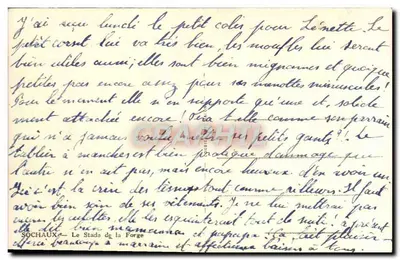 J'ai reçu lundi le petit colis pour Lénette. Le
petit corset lui va très bien, les moufles lui seront
bien utiles aussi; elles sont bien mignonnes et quoique
petites pas encore assez pour ses menottes minuscules!
Pour le moment elle n'en supporte qu'une et solide
ment attachée encore! Fera t-elle comme son parrain
qui n'a jamais voulu mettre ses petits gants? Le
tablier à manches est bien pratique dommage que
l'autre n'en ait pas, mais encore heureux d'en avoir un
Ici c'est la crise des tissus tout comme ailleurs. Il faut
avoir bien soin de ses vêtements. Je ne lui mettrai pas
elle dit bien mamman et papapa
SOCHAUX Le Stade de la Forge
merci beaucoup à marraine et affectueux baisers à tous.